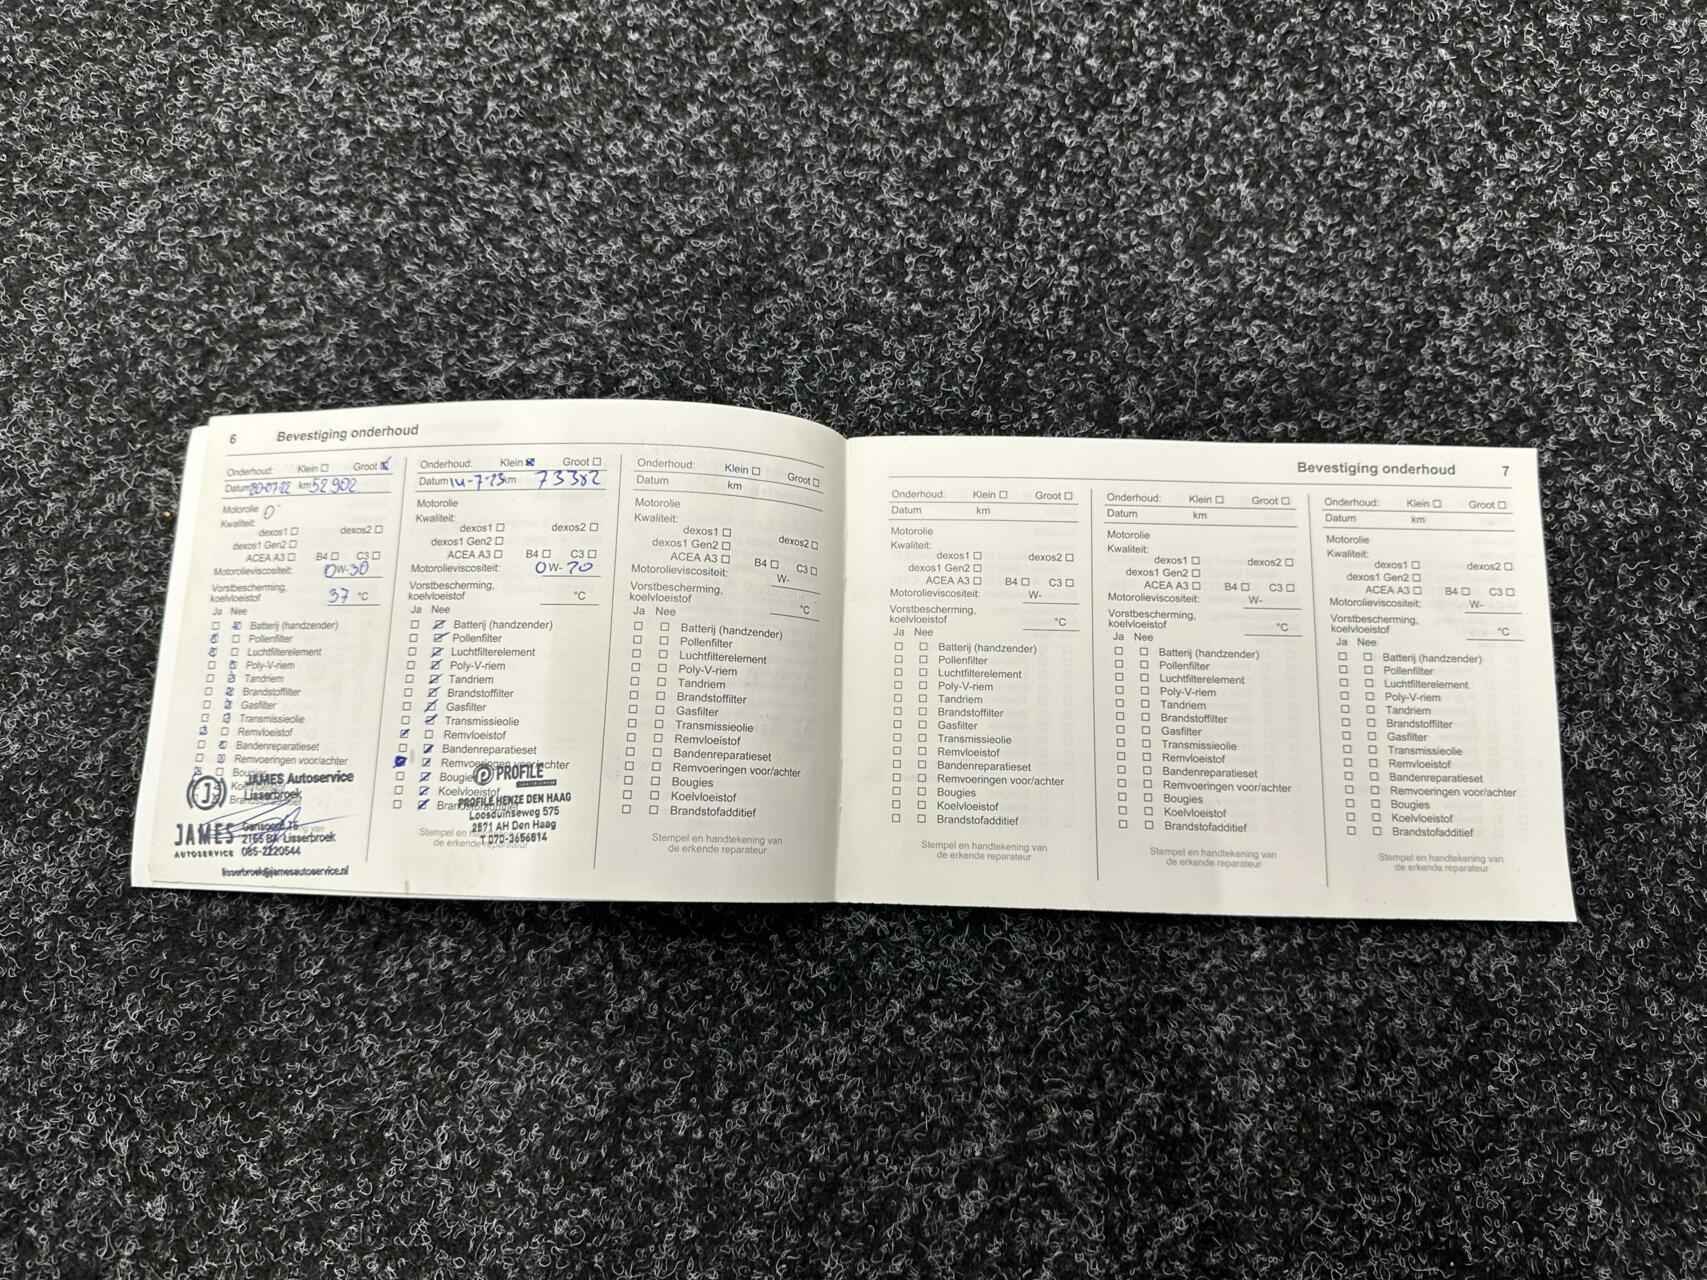 6 Bevestiging onderhoud
Onderhoud: Klein Groot
Datum 20-07-22 km 52902
Motorolie
Kwaliteit:
dexos1 dexos2
dexos1 Gen2
ACEA A3 B4 C3
Motorolieviscositeit: 0W-30
Vorstbescherming,
koelvloeistof 37 °C
Ja Nee
Batterij (handzender)
Pollenfilter
Luchtfilterelement
Poly-V-riem
Tandriem
Brandstoffilter
Gasfilter
Transmissieolie
Remvloeistof
Bandenreparatieset
Remvoeringen voor/achter
JAMES Autoservice
Lisserbroek
JAMES
AUTOSERVICE
2165 BA Lisserbroek
085-2220544
lisserbroek@jamesautoservice.nl
Onderhoud: Klein Groot
Datum 14-7-23 km 73382
Motorolie
Kwaliteit:
dexos1 dexos2
dexos1 Gen2
ACEA A3 B4 C3
Motorolieviscositeit: 0W-20
Vorstbescherming,
koelvloeistof °C
Ja Nee
Batterij (handzender)
Pollenfilter
Luchtfilterelement
Poly-V-riem
Tandriem
Brandstoffilter
Gasfilter
Transmissieolie
Remvloeistof
Bandenreparatieset
Remvoeringen voor/achter
Bougies
Koelvloeistof
PROFILE
PROFILE HENZE DEN HAAG
Loosduinseweg 575
2571 AH Den Haag
T 070-3656814
Stempel en
de erkende reparateur
Onderhoud: Klein Groot
Datum km
Motorolie
Kwaliteit:
dexos1 dexos2
dexos1 Gen2
ACEA A3 B4 C3
Motorolieviscositeit: W-
Vorstbescherming,
koelvloeistof °C
Ja Nee
Batterij (handzender)
Pollenfilter
Luchtfilterelement
Poly-V-riem
Tandriem
Brandstoffilter
Gasfilter
Transmissieolie
Remvloeistof
Bandenreparatieset
Remvoeringen voor/achter
Bougies
Koelvloeistof
Brandstofadditief
Stempel en handtekening van
de erkende reparateur
Bevestiging onderhoud 7
Onderhoud: Klein Groot
Datum km
Motorolie
Kwaliteit:
dexos1 dexos2
dexos1 Gen2
ACEA A3 B4 C3
Motorolieviscositeit: W-
Vorstbescherming,
koelvloeistof °C
Ja Nee
Batterij (handzender)
Pollenfilter
Luchtfilterelement
Poly-V-riem
Tandriem
Brandstoffilter
Gasfilter
Transmissieolie
Remvloeistof
Bandenreparatieset
Remvoeringen voor/achter
Bougies
Koelvloeistof
Brandstofadditief
Stempel en handtekening van
de erkende reparateur
Onderhoud: Klein Groot
Datum km
Motorolie
Kwaliteit:
dexos1 dexos2
dexos1 Gen2
ACEA A3 B4 C3
Motorolieviscositeit: W-
Vorstbescherming,
koelvloeistof °C
Ja Nee
Batterij (handzender)
Pollenfilter
Luchtfilterelement
Poly-V-riem
Tandriem
Brandstoffilter
Gasfilter
Transmissieolie
Remvloeistof
Bandenreparatieset
Remvoeringen voor/achter
Bougies
Koelvloeistof
Brandstofadditief
Stempel en handtekening van
de erkende reparateur
Onderhoud: Klein Groot
Datum km
Motorolie
Kwaliteit:
dexos1 dexos2
dexos1 Gen2
ACEA A3 B4 C3
Motorolieviscositeit: W-
Vorstbescherming,
koelvloeistof °C
Ja Nee
Batterij (handzender)
Pollenfilter
Luchtfilterelement
Poly-V-riem
Tandriem
Brandstoffilter
Gasfilter
Transmissieolie
Remvloeistof
Bandenreparatieset
Remvoeringen voor/achter
Bougies
Koelvloeistof
Brandstofadditief
Stempel en handtekening van
de erkende reparateur